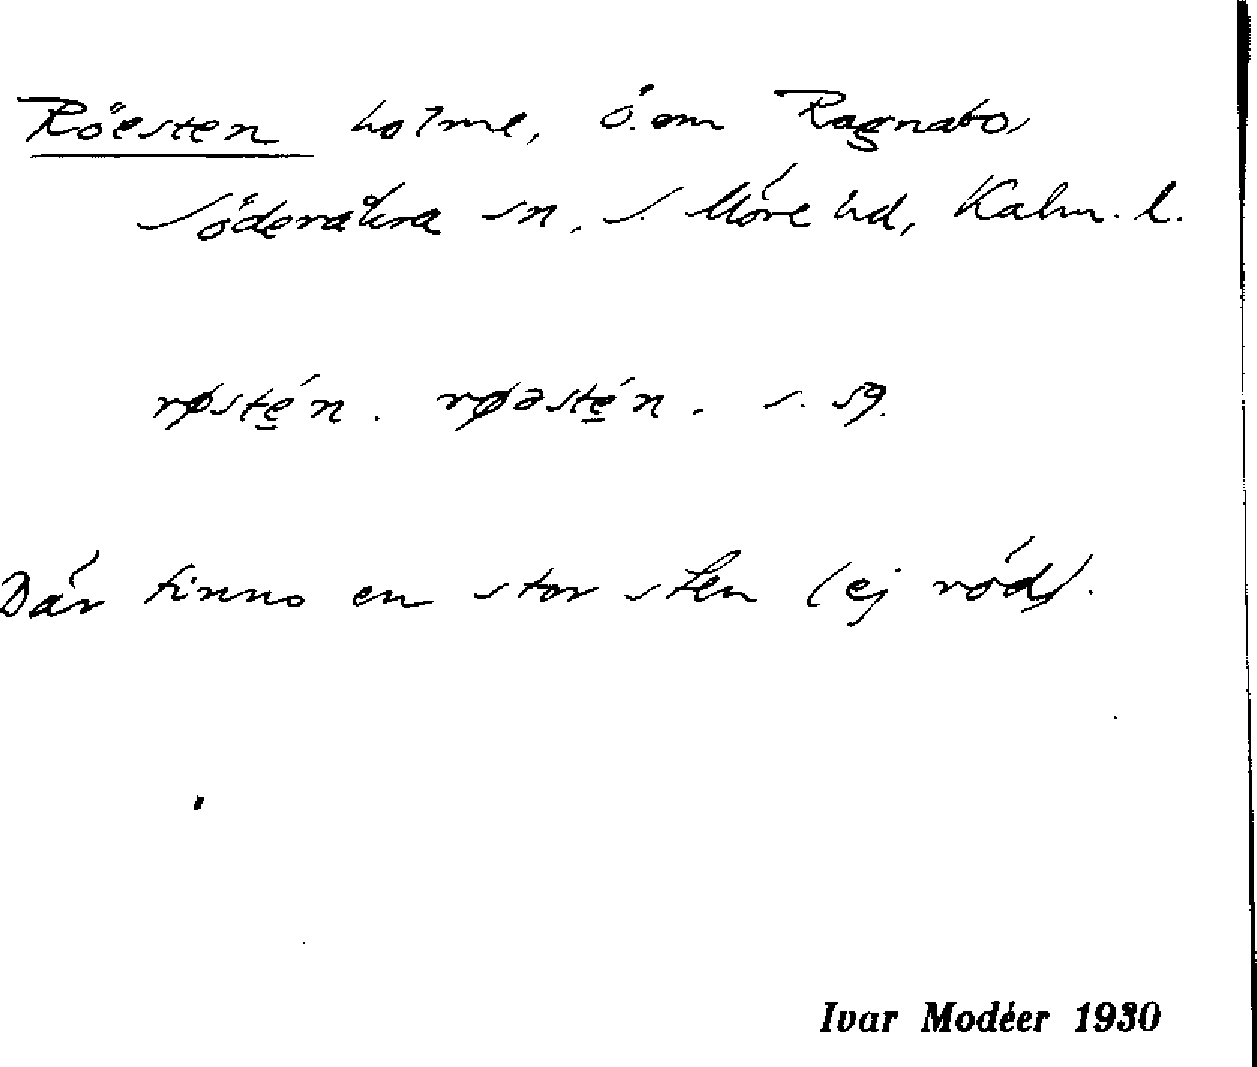 Röesten holme, ö. om Ragnabo,
Söderåkra sn, S. Möre hd, Kalm. l.
røste̲´n. røəste̲´n. s. 59.
Där finns en stor sten (ej röd).
Ivar Modéer 1930